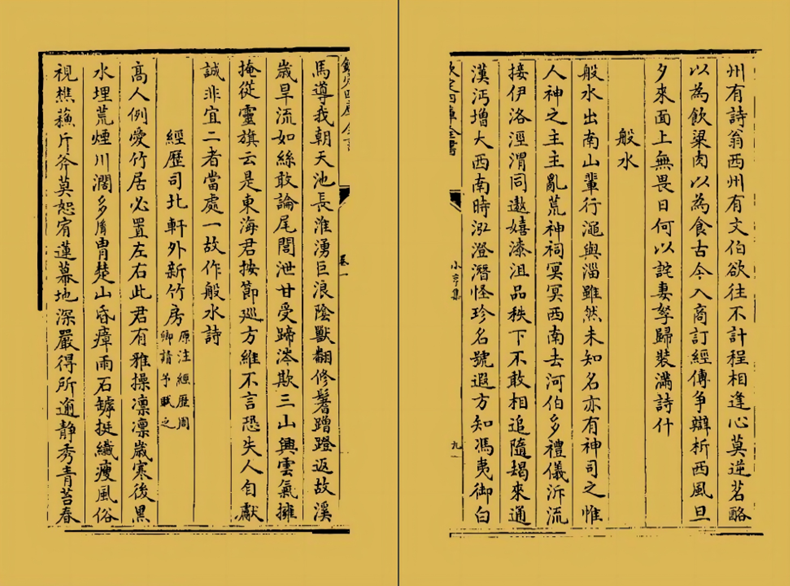 州有詩翁西州有文伯欲往不計程相逢心莫逆茗酪
以為飲粱肉以為食古今入商訂經傳爭辯析西風旦
夕來面上無畏日何以詫妻孥歸裝滿詩什
般水
般水出南山輩行澠與淄雖然未知名亦有神司之惟
人神之主主亂荒神祠冥冥西南去河伯多禮儀泝流
接伊洛涇渭同遨嬉漆沮品秩下不敢相追隨朅來通
漢沔增大西南時泓澄潛怪珍名號遐方知馮夷御白
欽定四庫全書
小亨集
九
卷一
馬導我朝天池長淮湧巨浪陰獸翻修鬐蹭蹬返故溪
歲旱流如絲敢論尾閭泄甘受蹄涔欺三山興雲氣擁
掩從靈旗云是東海君按節巡方維不言恐失人自獻
誠非宜二者當處一故作般水詩
經歷司北軒外新竹房原注經歷周卿請予賦之
高人例愛竹居必置左右此君有雅操凛凛歲寒後黑
水埋荒煙川濶多胄楚山昏瘴雨石罅挺纖瘦風俗
視樵蘇斤斧莫恕宥蓮幕地深嚴得所逾静秀青苔春